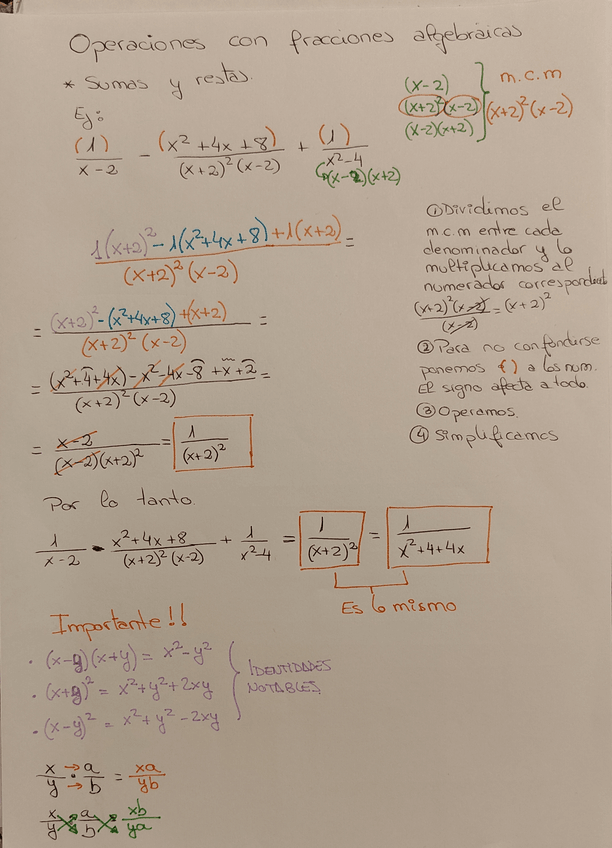 Operaciones con fracciones algebráicas
* Sumas y restas.
Ej:
(1)/(x-2) - (x²+4x+8)/((x+2)²(x-2)) + (1)/(x²-4)
(x-2)(x+2)
(x-2)
(x+2)²(x-2)
(x-2)(x+2)
m.c.m
(x+2)²(x-2)
(1(x+2)² - 1(x²+4x+8) + 1(x+2))/((x+2)²(x-2)) =
= ((x+2)² - (x²+4x+8) + (x+2))/((x+2)²(x-2)) =
= ((x²+4+4x) - x² - 4x - 8 + x + 2)/((x+2)²(x-2)) =
= (x-2)/((x-2)(x+2)²) = 1/(x+2)²
① Dividimos el
m.c.m entre cada
denominador y lo
multiplicamos al
numerador correspondiente
((x+2)²(x-2))/(x-2) = (x+2)²
② Para no confundirse
ponemos ( ) a los num.
El signo afecta a todo.
③ Operamos.
④ Simplificamos
Por lo tanto.
1/(x-2) - (x²+4x+8)/((x+2)²(x-2)) + 1/(x²-4) = 1/(x+2)² = 1/(x²+4+4x)
Es lo mismo
Importante!!
· (x-y)(x+y) = x²-y²
· (x+y)² = x²+y²+2xy
· (x-y)² = x²+y²-2xy
IDENTIDADES
NOTABLES
x/y → · → a/b = xa/yb
x/y a/b xb/ya